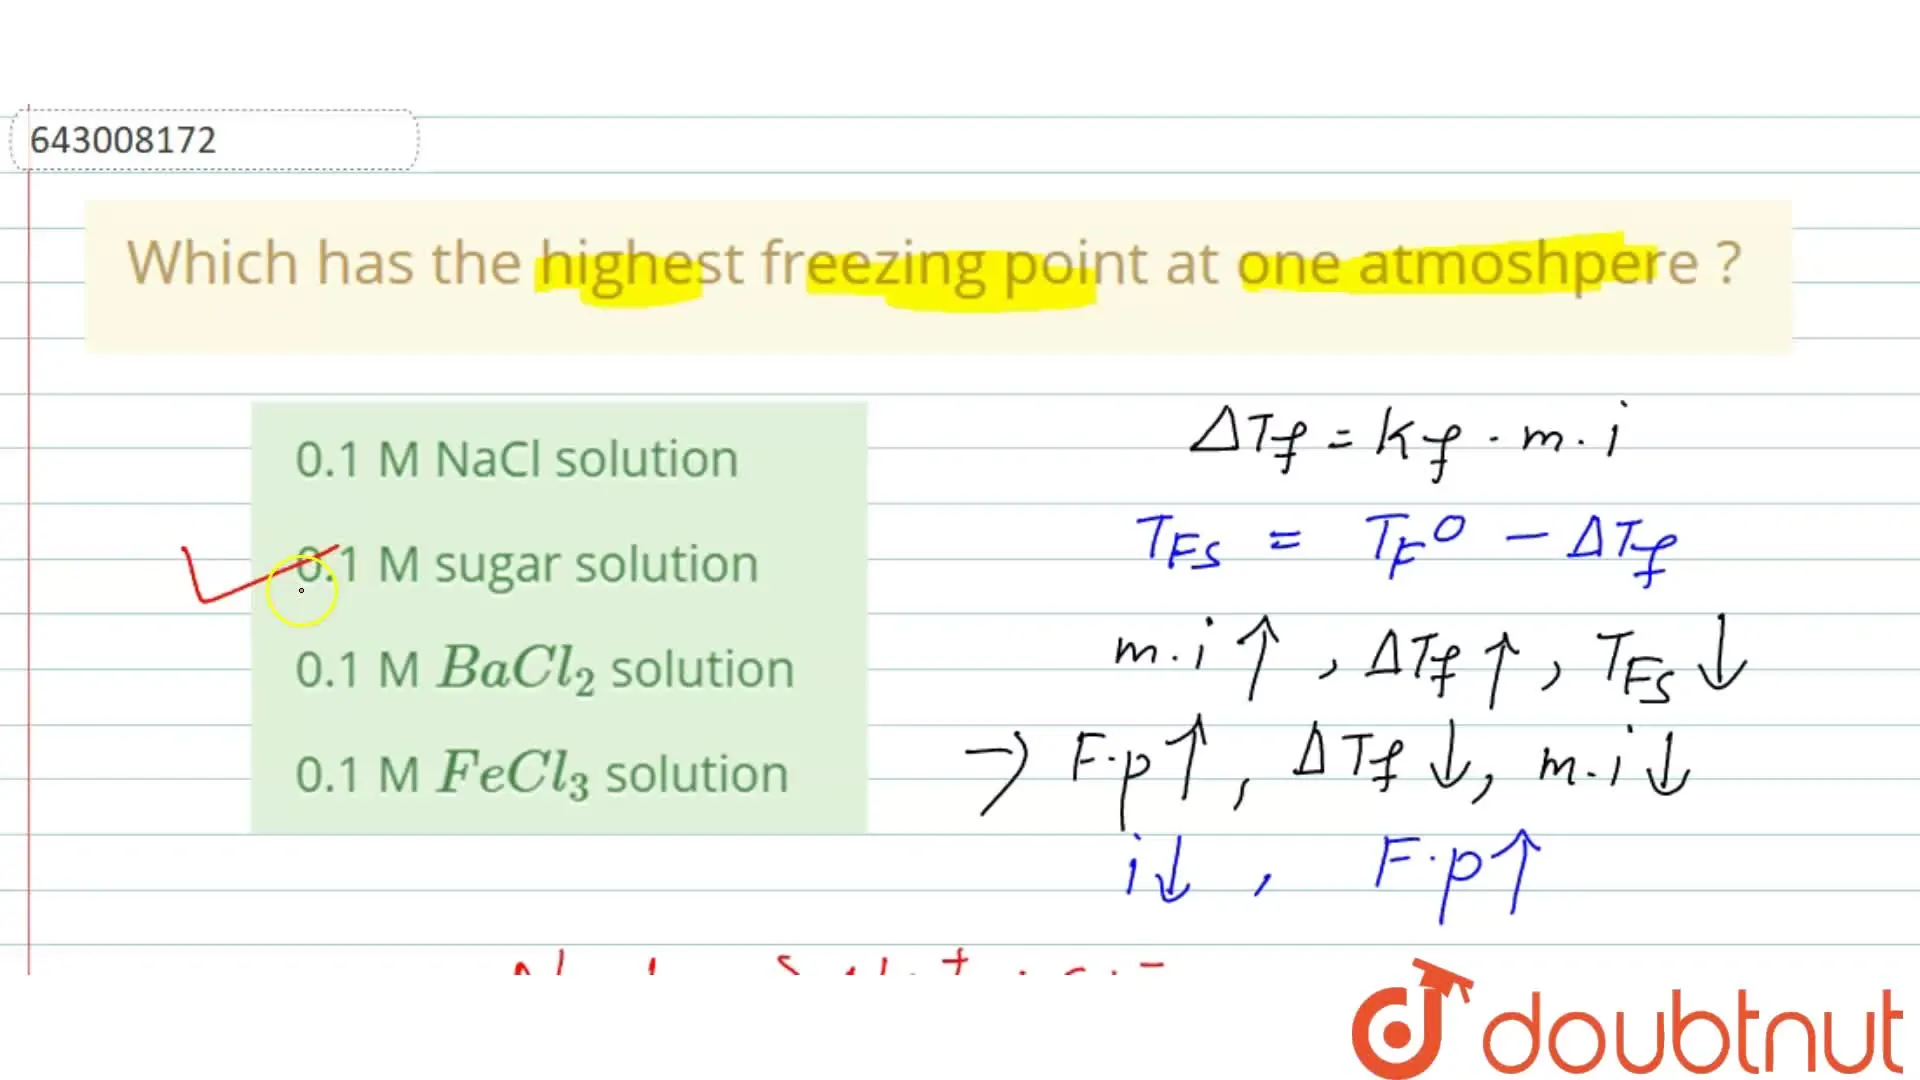 643008172
Which has the highest freezing point at one atmoshpere ?
0.1 M NaCl solution
0.1 M sugar solution
0.1 M BaCl₂ solution
0.1 M FeCl₃ solution
ΔTf = Kf . m . i
TFS = TF⁰ − ΔTf
m . i ↑ , ΔTf ↑ , TFS ↓
→ F.p ↑ , ΔTf ↓ , m . i ↓
i ↓ , F.p ↑
doubtnut